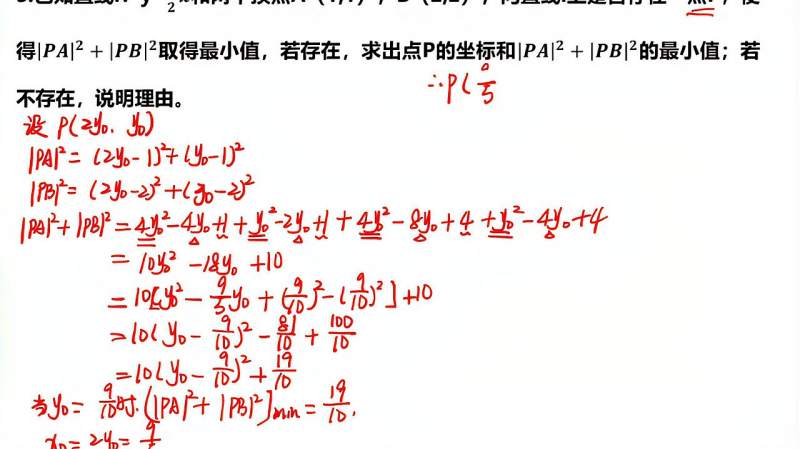 得|PA|² + |PB|²取得最小值，若存在，求出点P的坐标和|PA|² + |PB|²的最小值；若
不存在，说明理由。
∴P(9/5
设 P(2y₀, y₀)
|PA|² = (2y₀-1)²+(y₀-1)²
|PB|² = (2y₀-2)²+(y₀-2)²
|PA|²+|PB|² = 4y₀²-4y₀+1+y₀²-2y₀+1+4y₀²-8y₀+4+y₀²-4y₀+4
= 10y₀²-18y₀+10
= 10[y₀²-9/5y₀+(9/10)²-(9/10)²]+10
= 10(y₀-9/10)²-81/10+100/10
= 10(y₀-9/10)²+19/10
当y₀=9/10时.(|PA|²+|PB|²)min=19/10.
x₀=2y₀=9